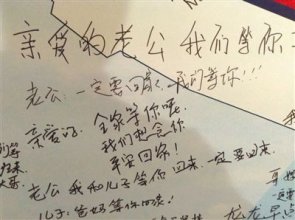 亲爱的老公 我们等你
老公：一定要回家，我们等你！！！
亲爱的：全家等你呢
我们想念你
平安回家！
老公 我和儿子等你 回来 一定要回来
儿子：爸妈等你回家！